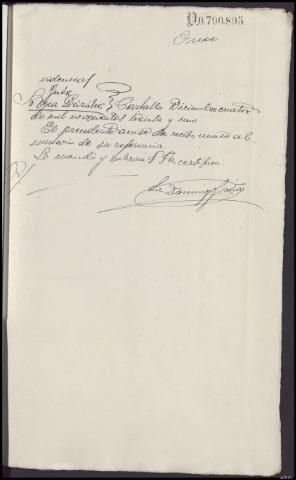 P.0.790.895
Once
videncia
Juez
Carballo Diciembre cuatro
de mil novecientos treinta y uno
El precedente acuse de recibo unase al
sumario de su referencia.
Lo mandó y rubrica S. Sª. certifico